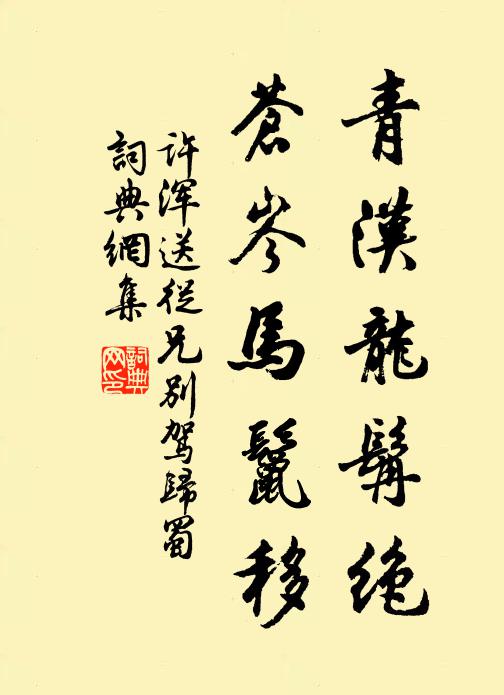 青漢龍髯絶
蒼岑馬鬣移
許渾送從兄別駕歸蜀
詞典網集
詞典
网印